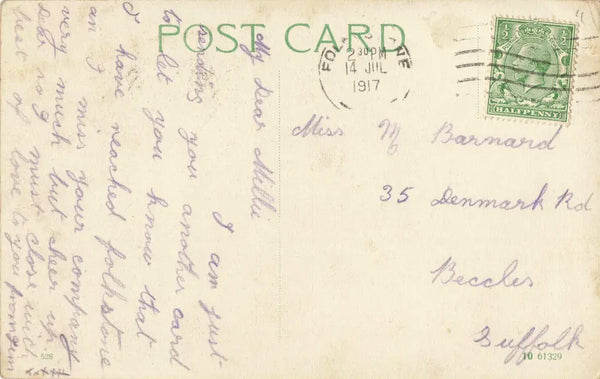 POST CARD
FOL NE
2 30 PM
14 JUL
1917
1/2 1/2
HALFPENNY
My Dear Millie
I am just
sending you another card
to let you know that
I have reached folkstone
an I miss your company
very much but cheer up
dear so I must close with
best of love to you from Jim
xx
Miss M Barnard
35 Denmark Rd
Beccles
Suffolk
526
10 61329